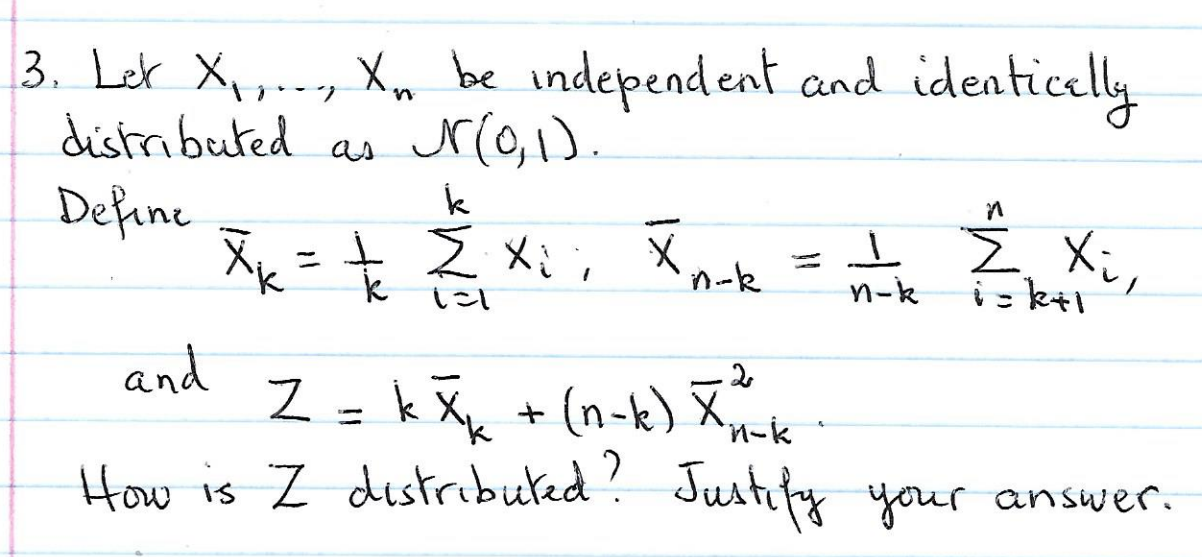 3. Let X₁,..., Xₙ be independent and identically
distributed as N(0,1).
Define X̄ₖ = 1/k ∑ᵢ₌₁ᵏ Xᵢ, X̄ₙ₋ₖ = 1/(n-k) ∑ᵢ₌ₖ₊₁ⁿ Xᵢ,
and Z = k X̄ₖ + (n-k) X̄²ₙ₋ₖ.
How is Z distributed? Justify your answer.